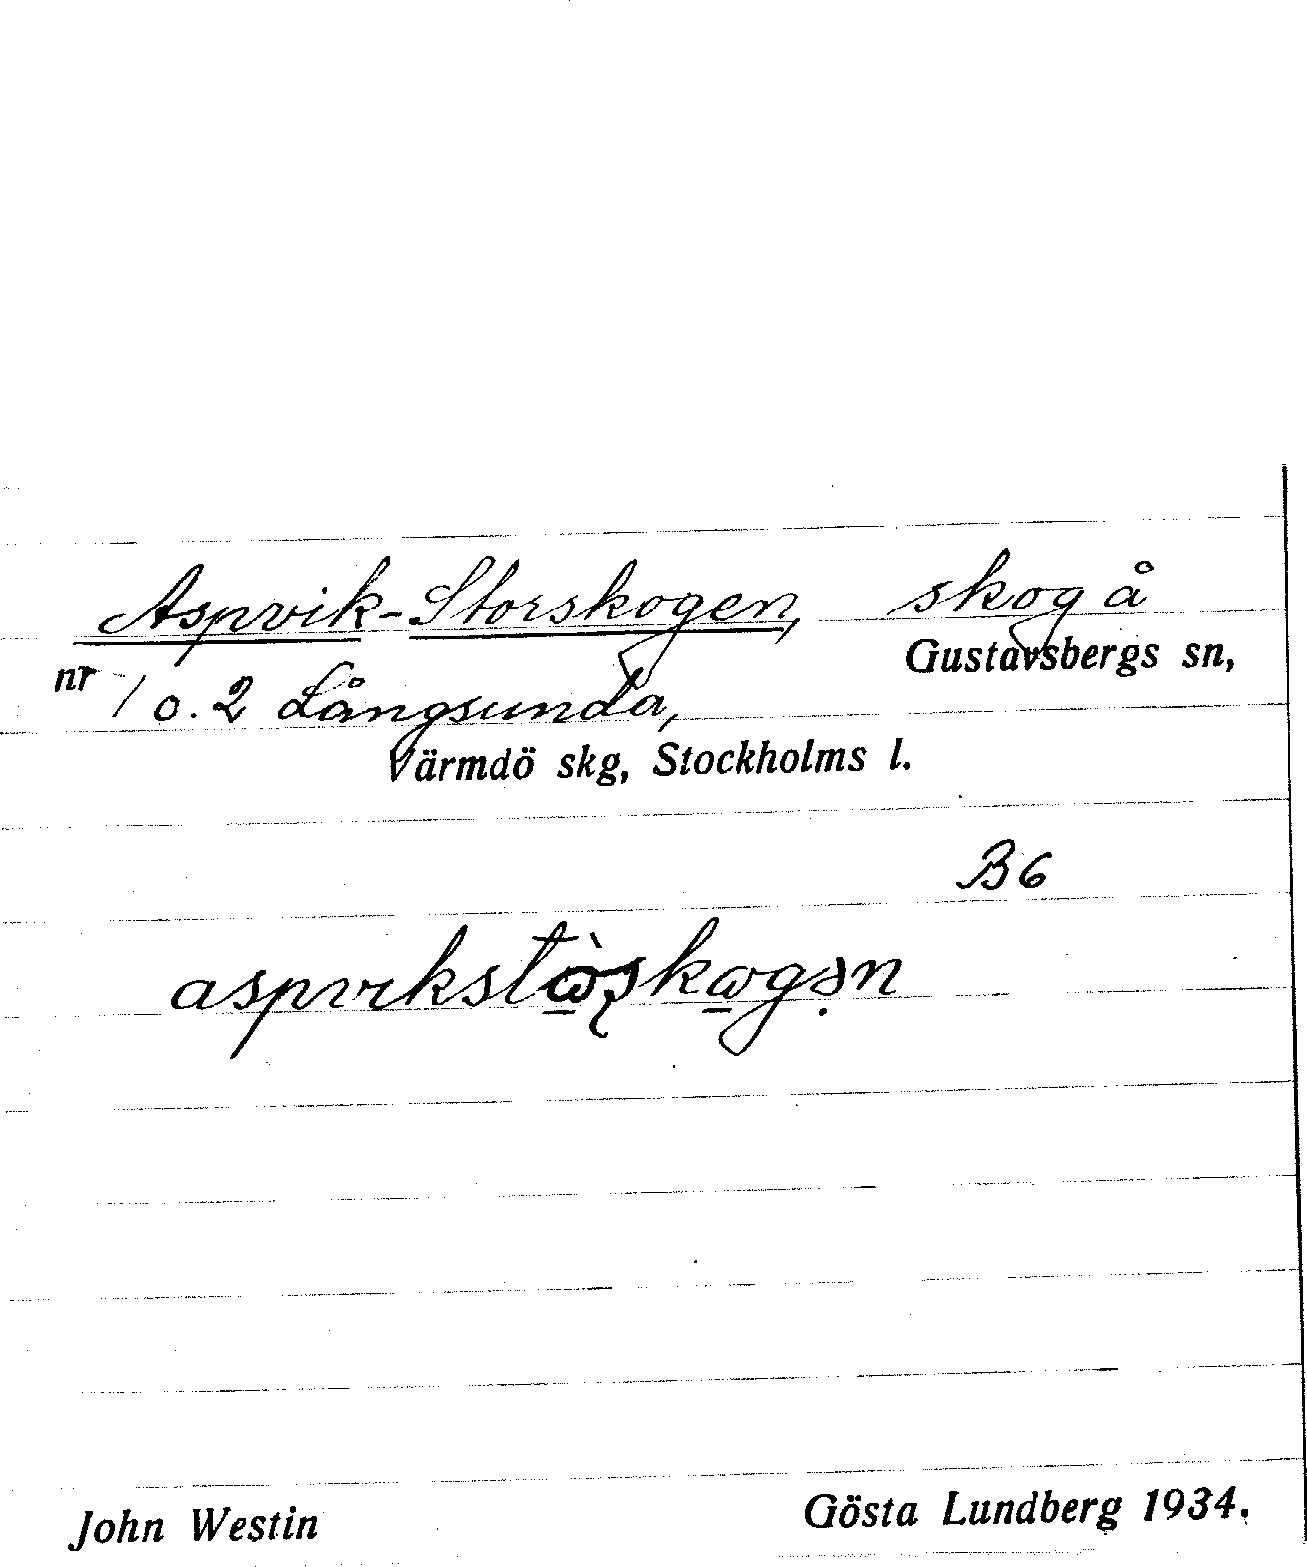 Aspvik-Storskogen, skog å
Gustavsbergs sn,
nr 1 o. 2 Långsunda,
Värmdö skg, Stockholms l.
B6
John Westin
Gösta Lundberg 1934.